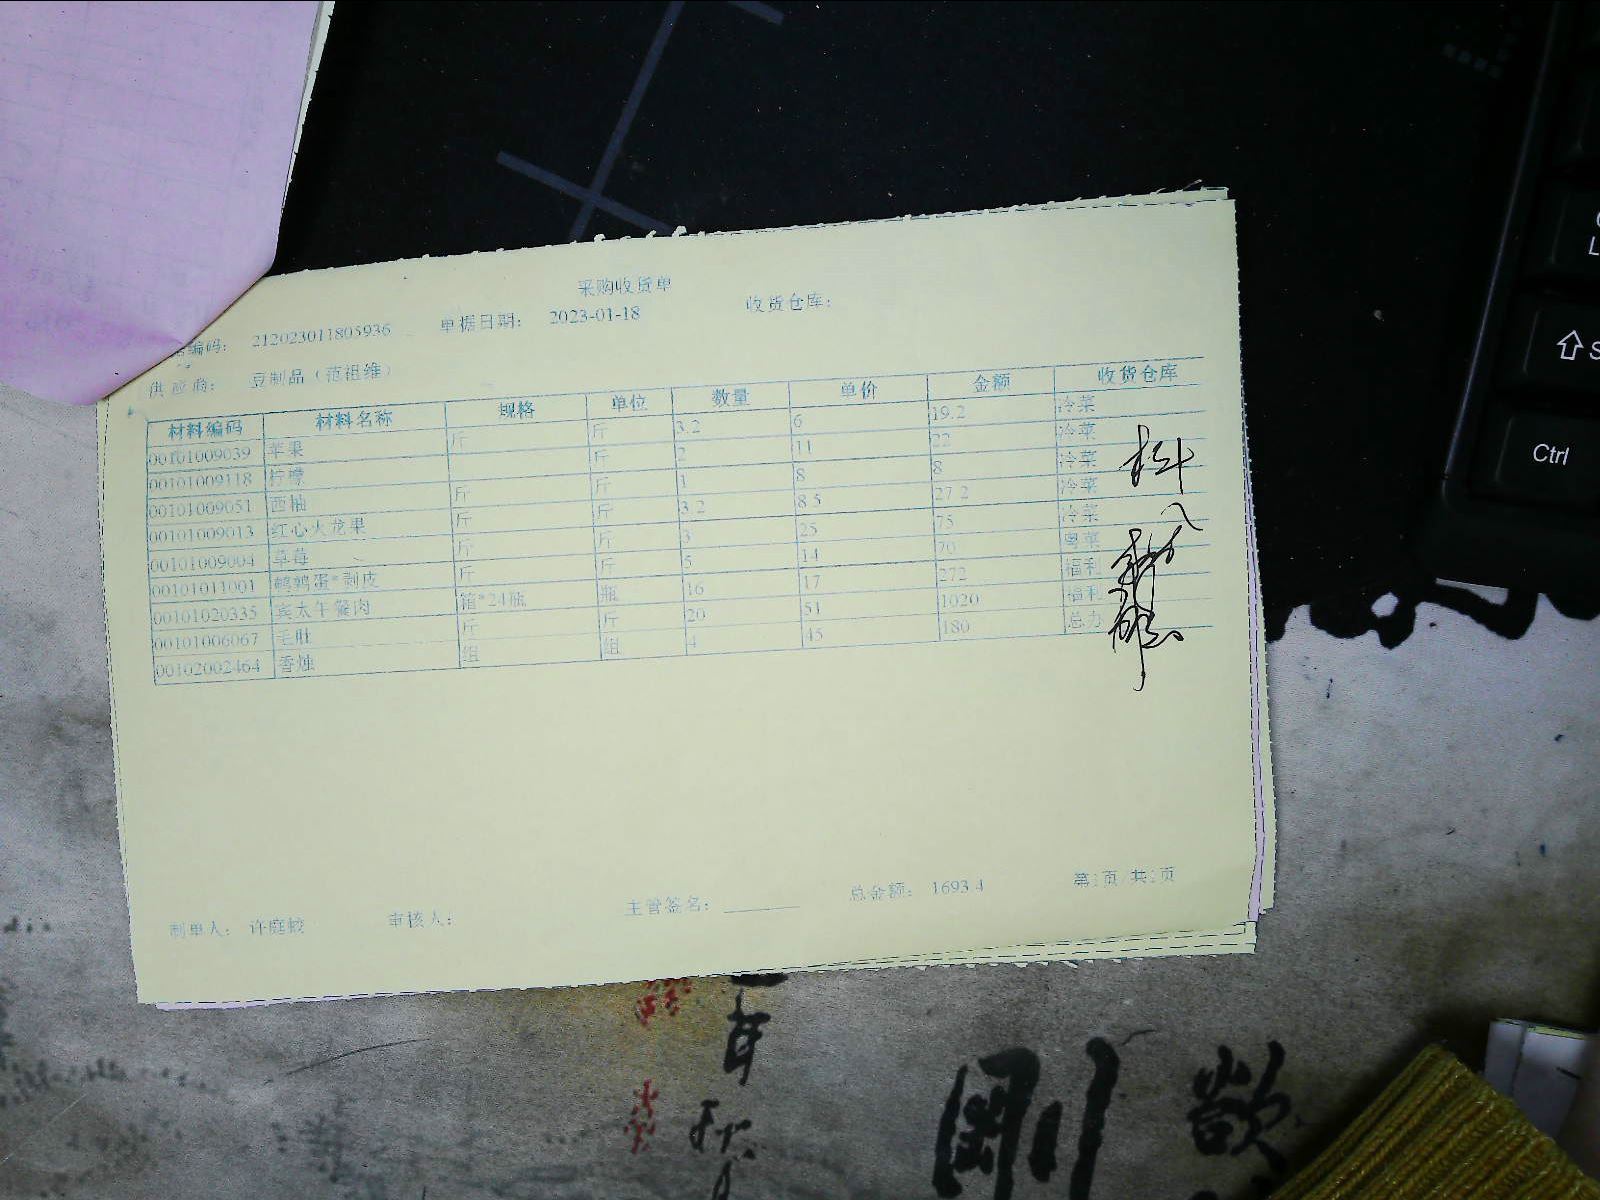 采购收货单
编码： 212023011805936 单据日期： 2023-01-18 收货仓库：
供应商： 豆制品（范祖维）
材料编码 材料名称 规格 单位 数量 单价 金额 收货仓库
00101009039 苹果 斤 斤 3.2 6 19.2 冷菜
00101009118 柠檬 斤 2 11 22 冷菜
00101009051 西柚 斤 斤 1 8 8 冷菜
00101009013 红心火龙果 斤 斤 3.2 8.5 27.2 冷菜
00101009004 草莓 斤 斤 3 25 75 冷菜
00101011001 鹌鹑蛋*剥皮 斤 斤 5 14 70 粤菜
00101020335 宾太午餐肉 箱*24瓶 瓶 16 17 272 福利
00101006067 毛肚 斤 斤 20 51 1020 福利
00102002464 香烛 组 组 4 45 180 总办
制单人： 许庭 审核人： 主管签名： 总金额： 1693.4 第1页/共1页
Ctrl
剛